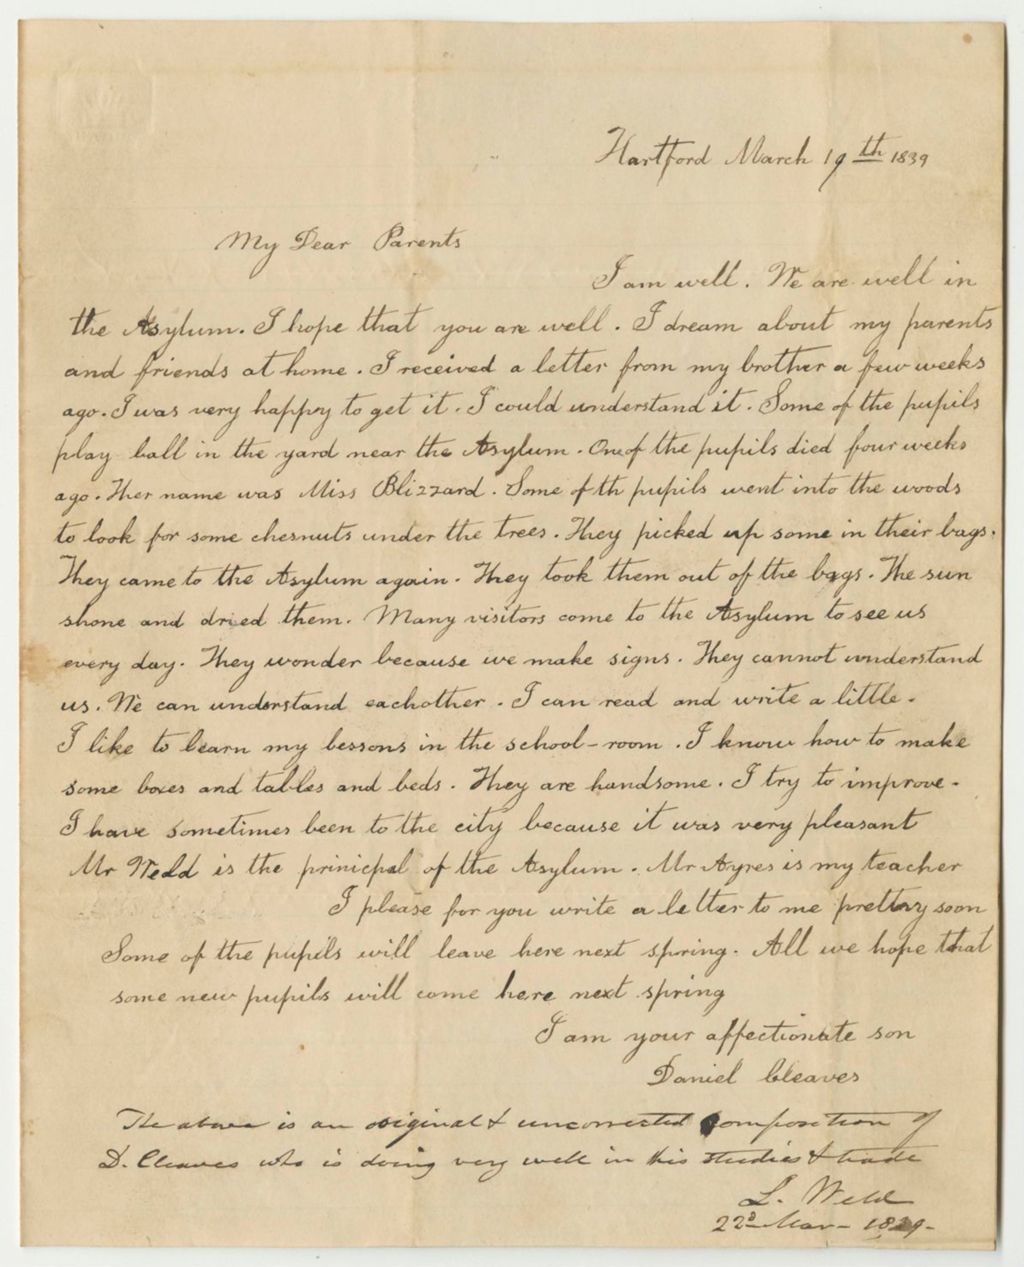 Hartford March 19th 1839
My Dear Parents
I am well. We are well in
the Asylum. I hope that you are well. I dream about my parents
and friends at home. I received a letter from my brother a few weeks
ago. I was very happy to get it. I could understand it. Some of the pupils
play ball in the yard near the Asylum. One of the pupils died four weeks
ago. Her name was Miss Blizzard. Some of th pupils went into the woods
to look for some chesnuts under the trees. They picked up some in their bags.
They came to the Asylum again. They took them out of the bags. The sun
shone and dried them. Many visitors come to the Asylum to see us
every day. They wonder because we make signs. They cannot understand
us. We can understand eachother. I can read and write a little.
I like to learn my lessons in the school-room. I know how to make
some boxes and tables and beds. They are handsome. I try to improve.
I have sometimes been to the city because it was very pleasant
Mr Weld is the prinicpal of the Asylum. Mr Ayres is my teacher
I please for you write a letter to me prettvy soon
Some of the pupils will leave here next spring. All we hope that
some new pupils will come here next spring
I am your affectionate son
Daniel Cleaves
The above is an original & uncorrected composition of
D. Cleaves who is doing very well in his studies & trade
L. Weld
22d Mar- 1839-